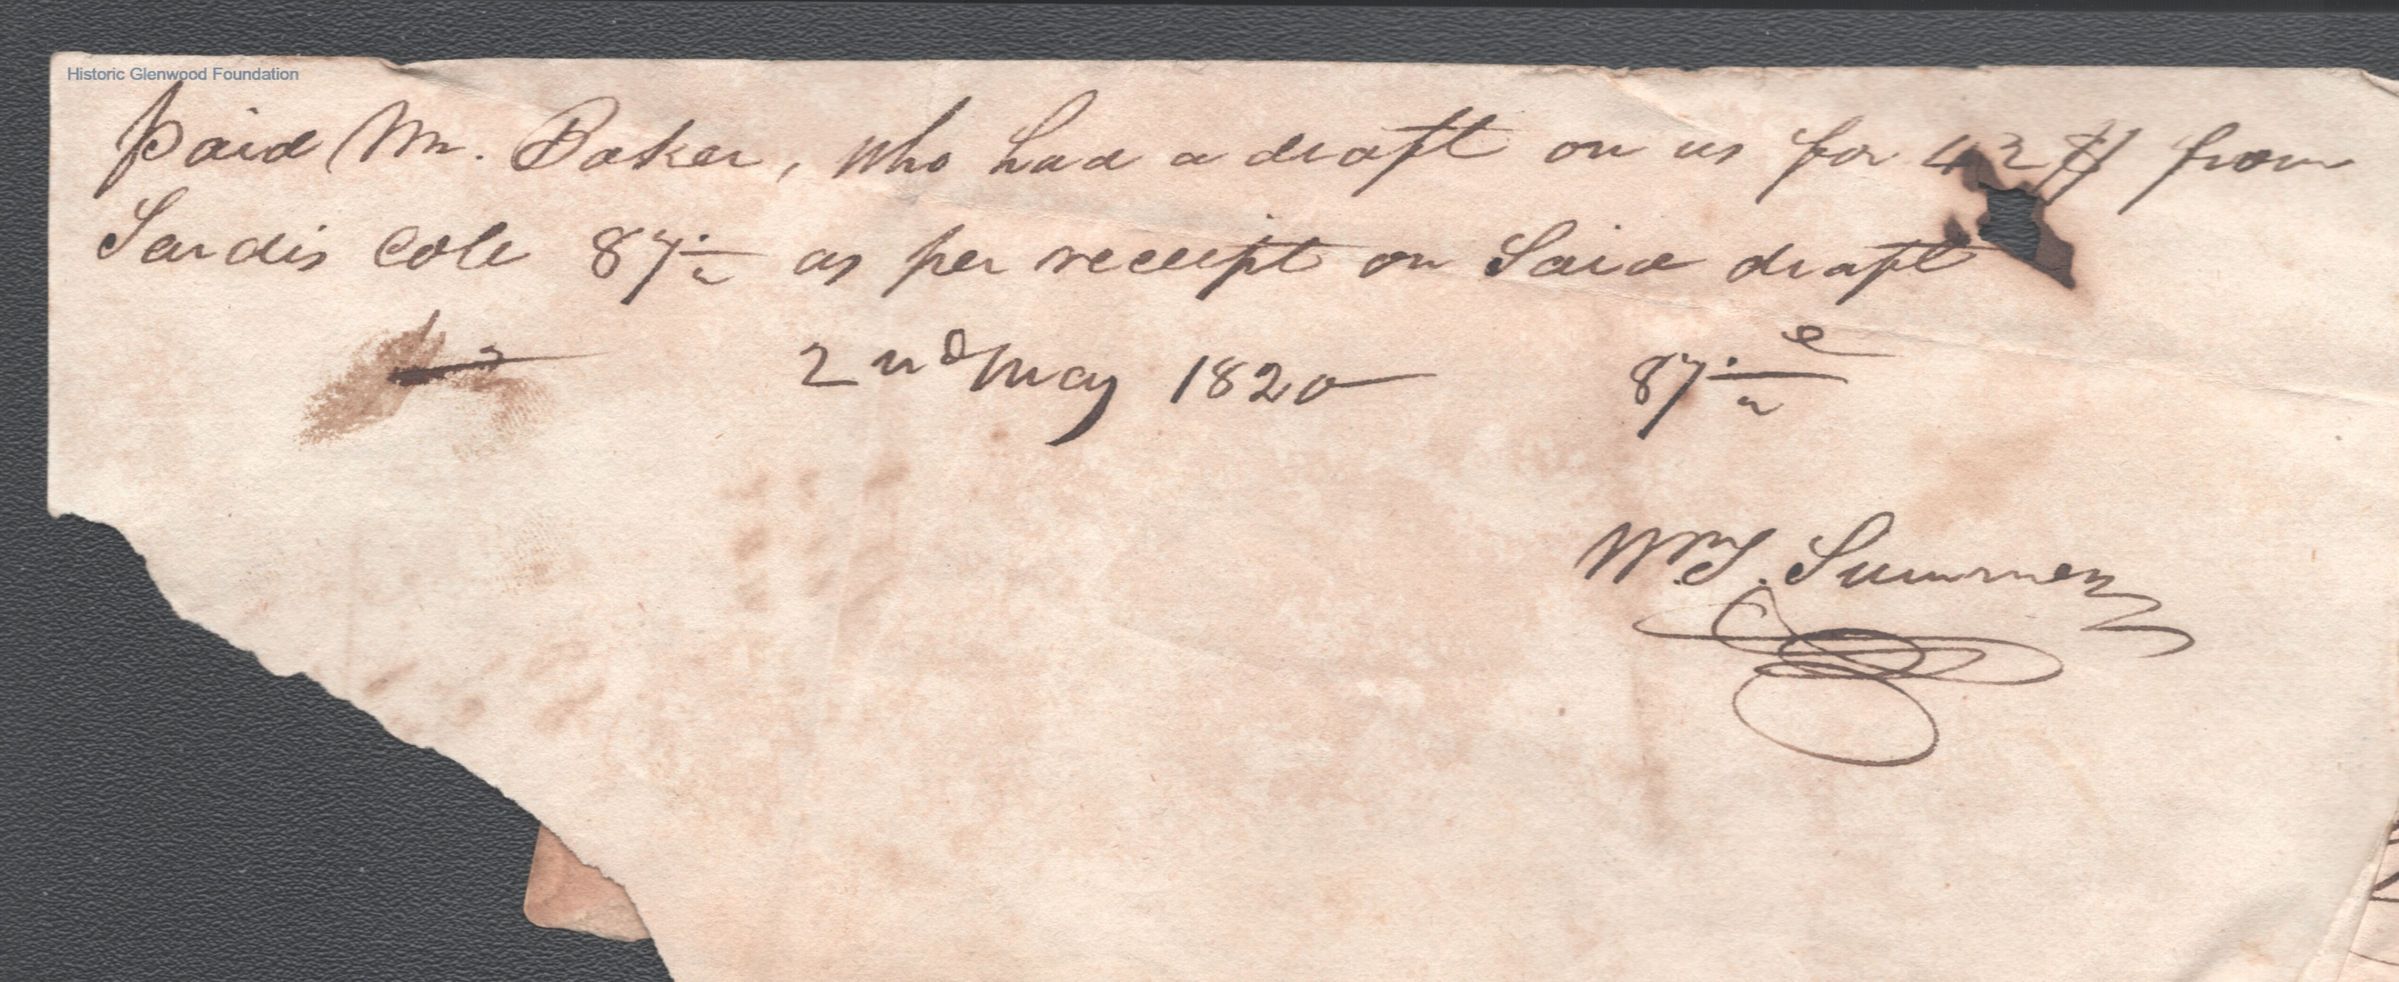 Historic Glenwood Foundation
Paid Mr. Baker, who had a draft on us for 42 $ from
Sardis Cole 87 ½ as per receipt on Said draft
2nd May 1820 87 ½ c
Wm S. Summers